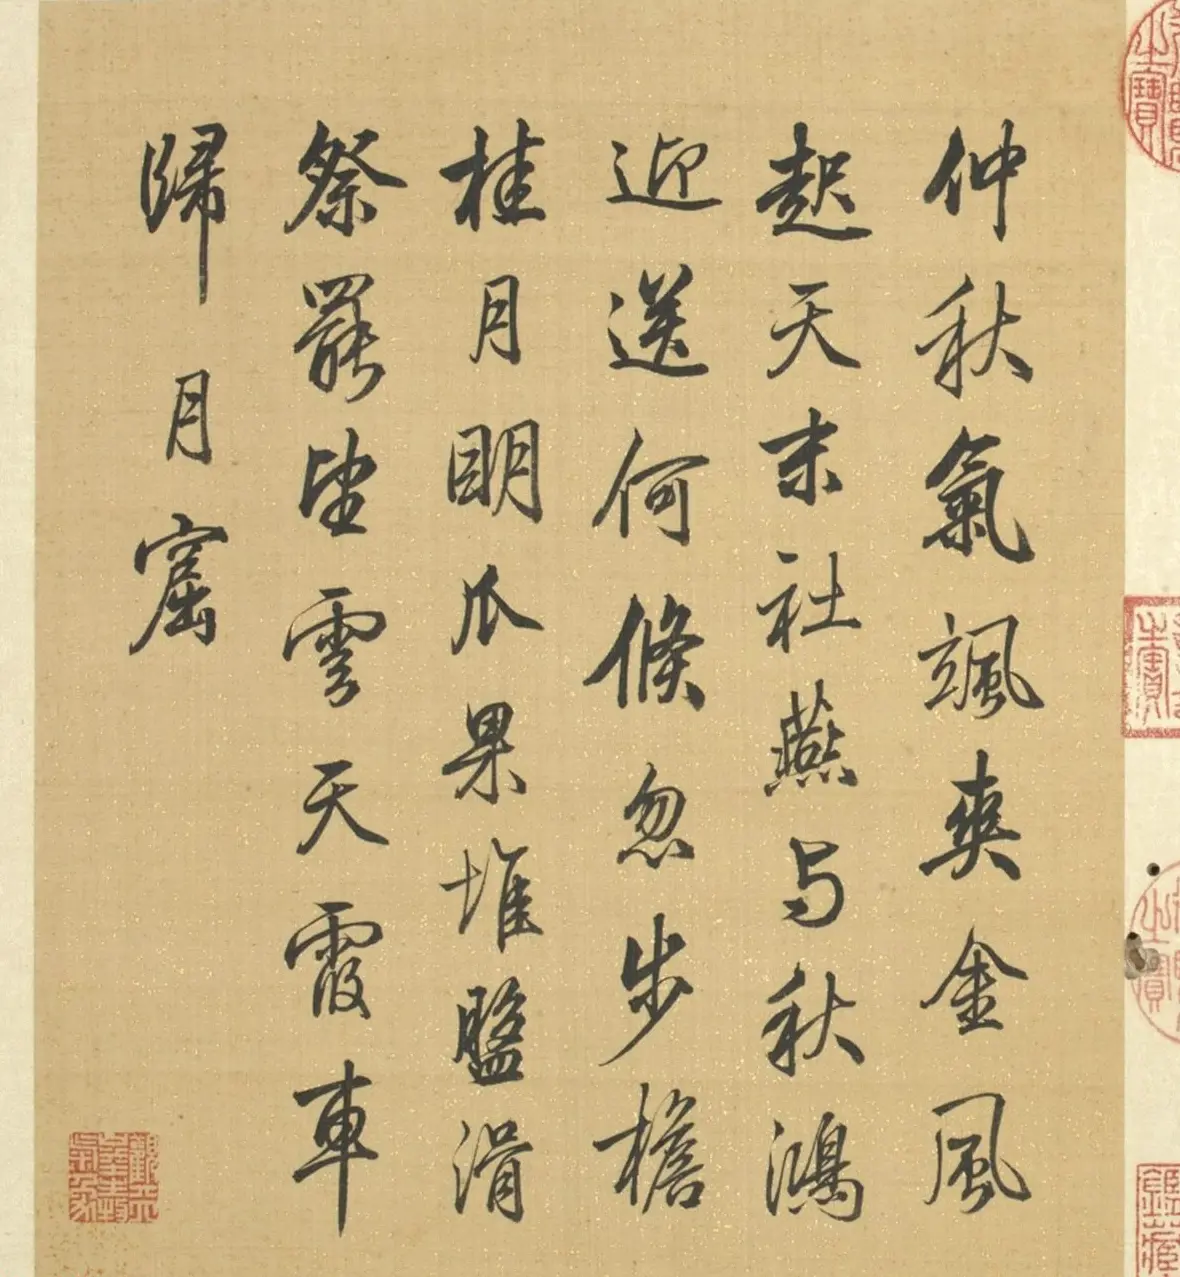 仲秋氣颯爽金風
起天末社燕与秋鴻
迎送何倏忽步檐
桂月明瓜果堆盤滑
祭罷望雲天霞車
歸月窟
之寶
之寶
之寶